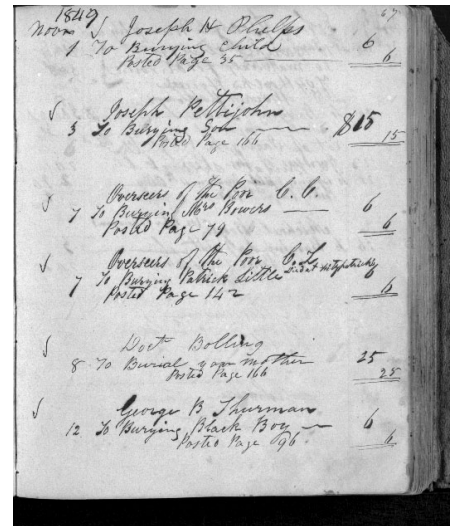 1849 67
Novm √ Joseph H Phelps
1 To Burying Child 6
Posted Page 35 6
√ Joseph Pettijohn
3 To Burying Son $15
Posted Page 166 15
√ Overseers of the Poor C. C.
7 To Burying Mrs Bowers 6
Posted Page 79 6
√ Overseers of the Poor C.
7 To Burying Patrick Little died at Fitzpatricks 6
Posted Page 142 6
√ Doct Bolling
8 To Burial your mother 25
Posted Page 166 25
√ George B Thurman
12 To Burying Black Boy 6
Posted Page 96. 6